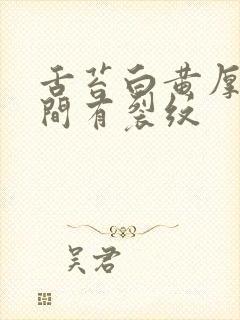 舌苔白黄厚
間有裂纹
吴君